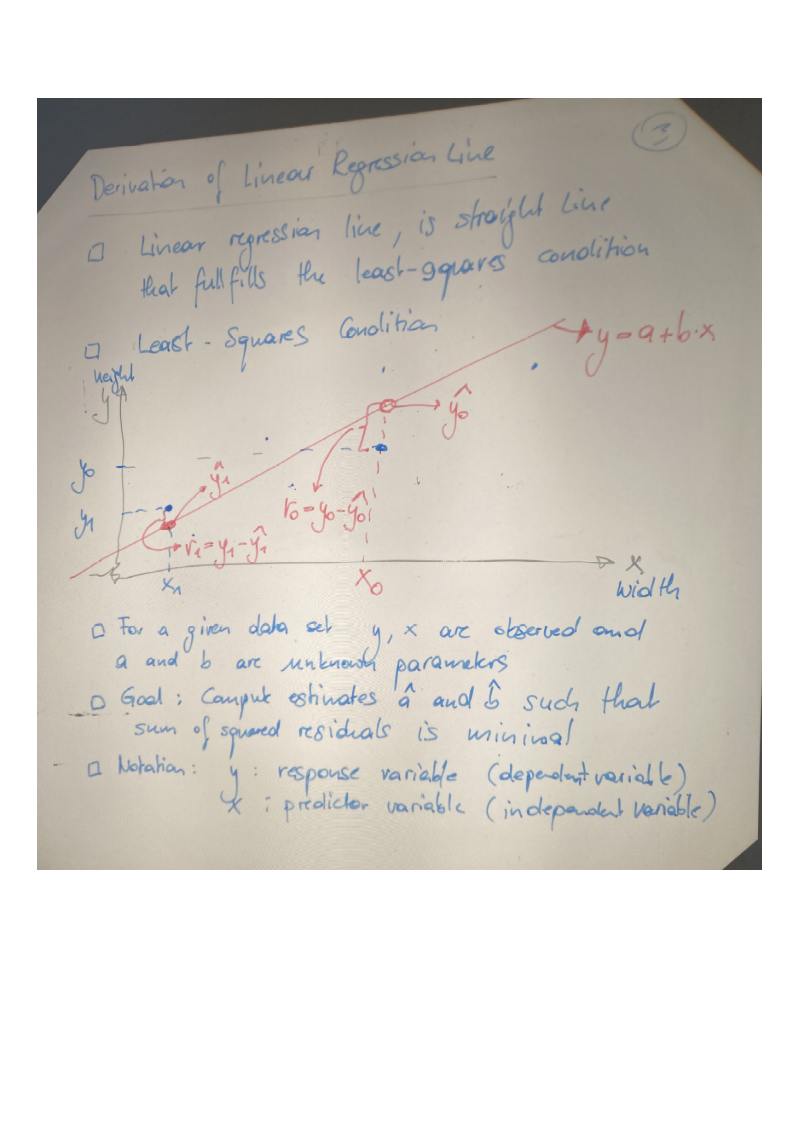 3
Derivation of Linear Regression Line
□ Linear regression line, is straight line
that fullfills the least-squares condition
□ Least-Squares Condition
height
y
y = a + b·x
ŷ₀
y₀
ŷ₁
y₁
r₀ = y₀ - ŷ₀
r₁ = y₁ - ŷ₁
x₁
x₀
x
width
□ For a given data set y, x are observed and
a and b are unknown parameters
□ Goal: Compute estimates â and b̂ such that
sum of squared residuals is minimal
□ Notation: y : response variable (dependent variable)
x : predictor variable (independent variable)